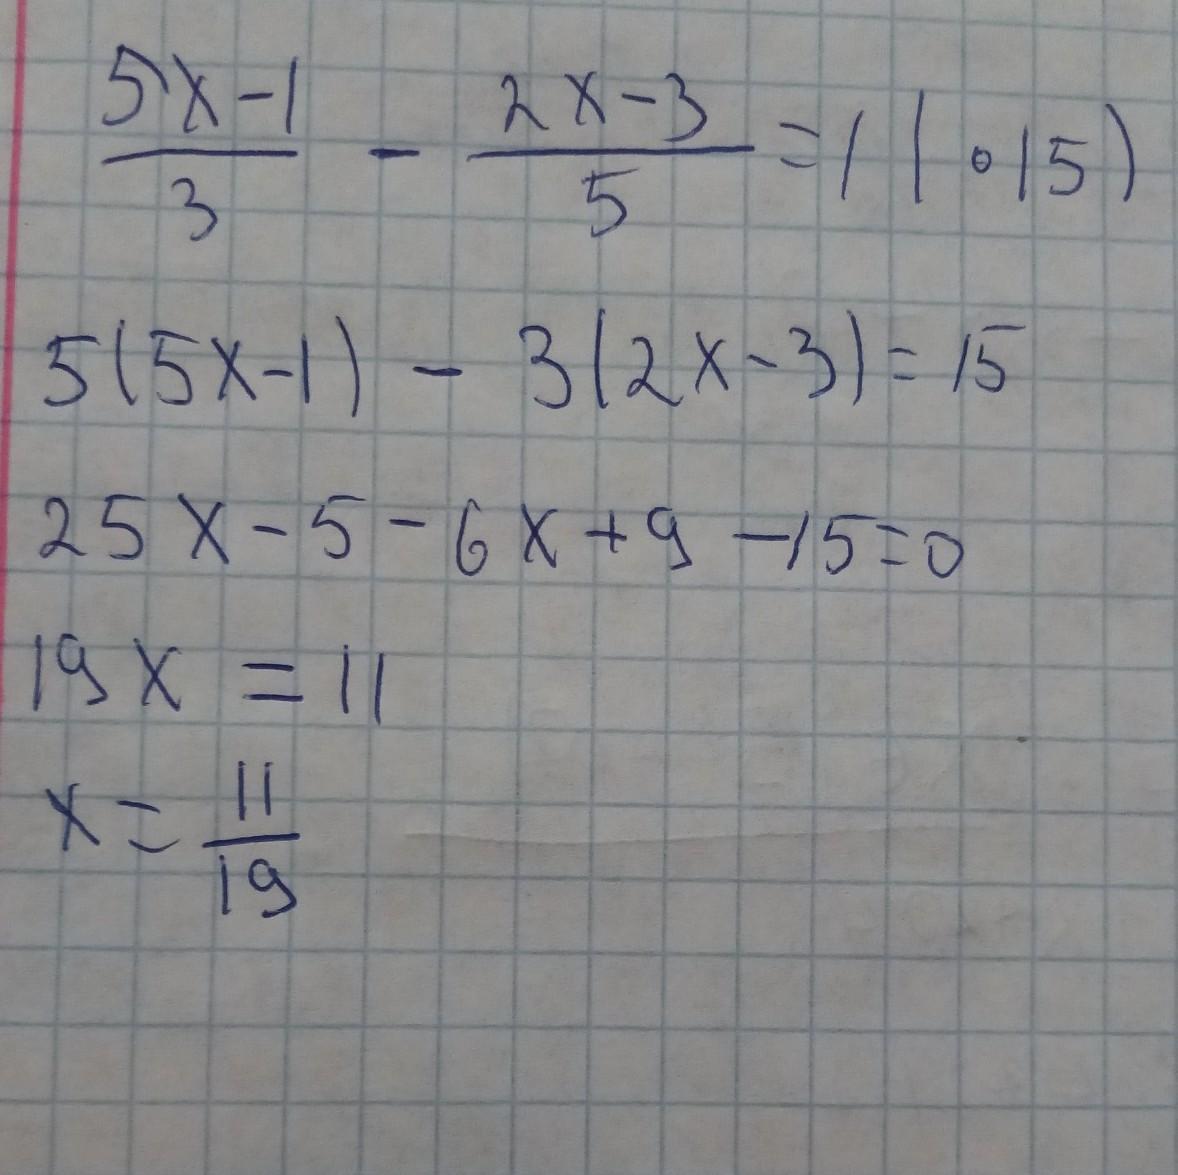 (5x-1)/3 - (2x-3)/5 = 1 | •15)
5(5x-1) - 3(2x-3) = 15
25x - 5 - 6x + 9 - 15 = 0
19x = 11
x = 11/19